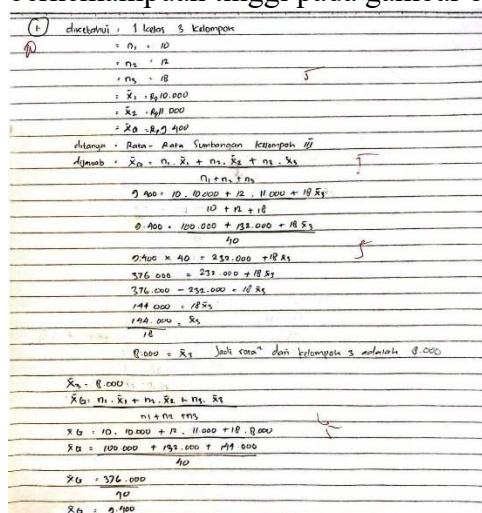 1. diketahui : 1 kelas 3 kelompok
: n₁ = 10
: n₂ = 12
: n₃ = 18
: x̄₁ = Rp 10.000
: x̄₂ = Rp 11 000
: x̄G = Rp 9 400
ditanya : Rata - Rata Sumbangan kelompok
dijawab : x̄G = n₁ . x̄₁ + n₂ . x̄₂ + n₃ . x̄₃
n₁ + n₂ + n₃
9 400 = 10 . 10.000 + 12 . 11.000 + 18 x̄₃
10 + 12 + 18
9.400 = 100.000 + 132.000 + 18 x̄₃
40
9.400 x 40 = 232.000 + 18 x̄₃
376 000 = 232.000 + 18 x̄₃
376.000 - 232.000 = 18 x̄₃
144 000 = 18 x̄₃
144.000 = x̄₃
18
8.000 = x̄₃ Jadi rata² dari kelompok 3 adalah 8.000
x̄₃ = 8.000
x̄G = n₁ . x̄₁ + n₂ . x̄₂ + n₃ . x̄₃
n₁ + n₂ + n₃
x̄G = 10 . 10.000 + 12 . 11.000 + 18 . 8.000
x̄G = 100 000 + 132.000 + 144.000
40
x̄G = 376.000
40
x̄G = 9.400